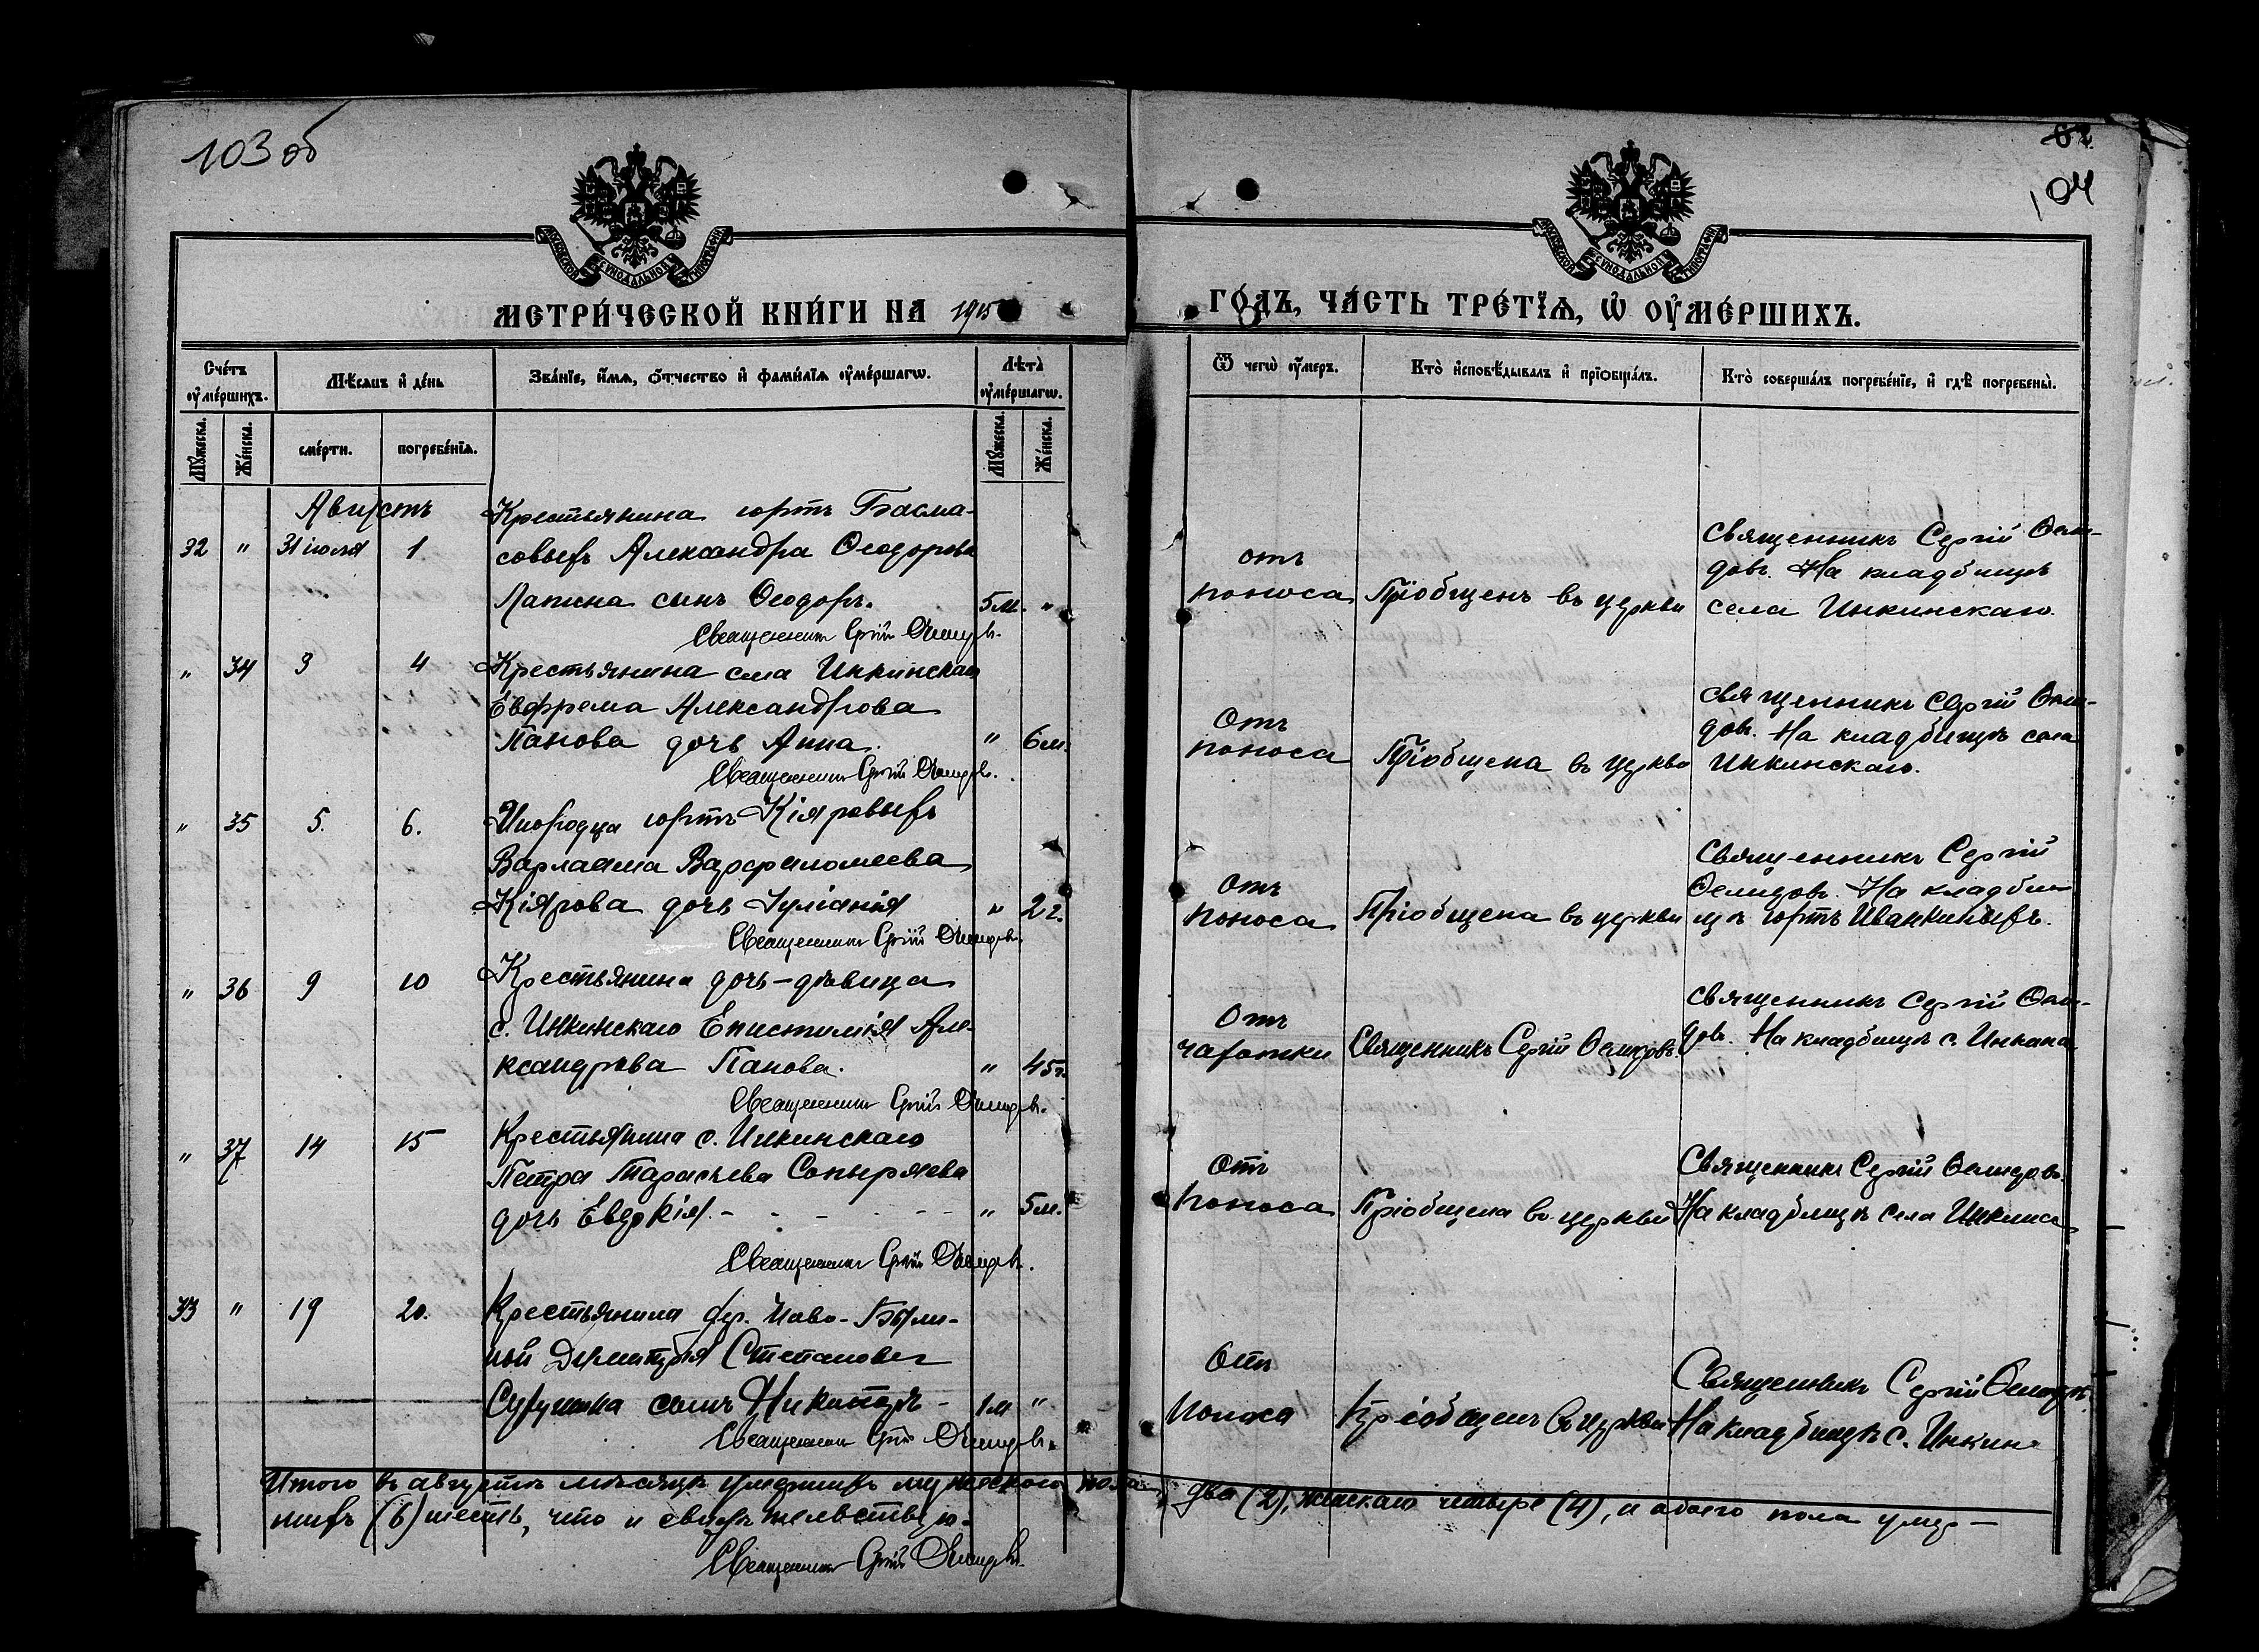 103 об
104
МЕТРИЧЕСКОЙ КНИГИ НА 1915
ГОДЪ, ЧАСТЬ ТРЕТІЯ, Ѡ ОУМЕРШИХЪ.
Счетъ оумершихъ.
Мужеска.
Женска.
Мѣсяцъ и день
смерти.
погребенія.
Званіе, имя, отчество и фамилія оумершагѡ.
Лѣта оумершагѡ.
Мужеска.
Женска.
Ѿ чегѡ оумеръ.
Кто исповѣдывалъ и пріобщалъ.
Кто совершалъ погребеніе, и гдѣ погребены.
Августъ
32 " 31 іюля 1
Крестьянина юртъ Басма-
совыхъ Александра Ѳеодорова
Лапина сынъ Ѳеодоръ. 5 м. "
Священникъ Сергій
отъ
поноса
Пріобщенъ въ церкви
Священникъ Сергій
На кладбищѣ
села Инкинскаго.
" 34 3 4
Крестьянина села Инкинскаго
Евфрема Александрова
Панова дочь Анна. " 6 м.
Священникъ Сергій
Отъ
поноса
Пріобщена въ церкви
Священникъ Сергій
На кладбищѣ села
Инкинскаго.
" 35 5. 6.
Инородца юртъ Кіяровыхъ
Варлаама Варфоломеева
Кіярова дочь Іуліанія " 2 г.
Священникъ Сергій
Отъ
поноса
Пріобщена въ церкви
Священникъ Сергій
На кладби-
щѣ юртъ Иванкиныхъ.
" 36 9 10
Крестьянина дочь-дѣвица
с. Инкинскаго Епистимія Але-
ксандрова Панова. " 45 г.
Священникъ Сергій
Отъ
чахотки
Священникъ Сергій
Священникъ Сергій
На кладбищѣ с. Инкина
" 37 14 15
Крестьянина с. Инкинскаго
Петра Тарасьева Сопыряева
дочь Евдокія. " 5 м.
Священникъ Сергій
Отъ
поноса
Пріобщена въ церкви
Священникъ Сергій
На кладбищѣ села Инкина
33 " 19 20.
Крестьянина дер. Ново-
Степанова
сынъ Никаноръ - 1 м "
Священникъ Сергій
Отъ
поноса
Пріобщенъ въ церкви
Священникъ Сергій
На кладбищѣ с. Инкин
Итого въ августѣ мѣсяцѣ умершихъ мужескаго пола два (2), женскаго четыре (4), и обоего пола умер-
шихъ (6) шесть, что и свидѣтельствую.
Священникъ Сергій